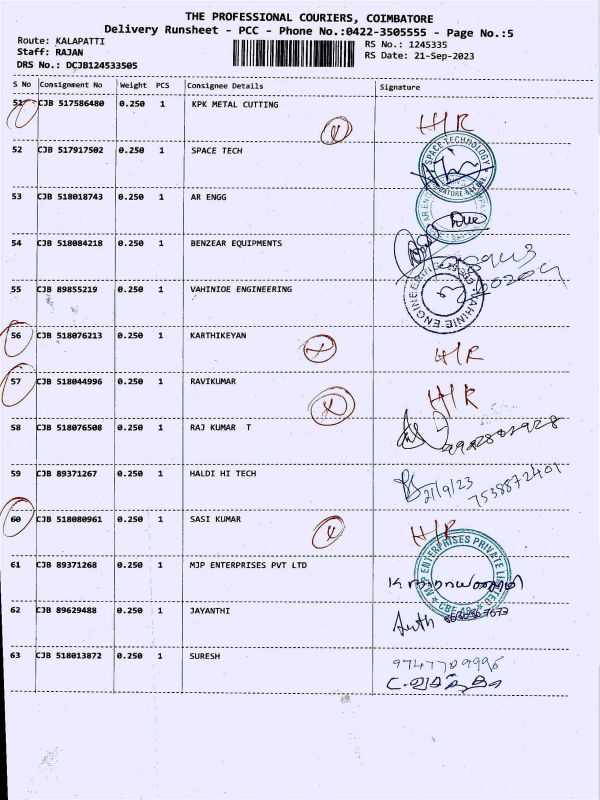 THE PROFESSIONAL COURIERS, COIMBATORE
Delivery Runsheet - PCC - Phone No.:0422-3505555 - Page No.:5
Route: KALAPATTI
Staff: RAJAN
DRS No.: DCJB124533505
RS No.: 1245335
RS Date: 21-Sep-2023
S No Consignment No Weight PCS Consignee Details Signature
51 CJB 517586480 0.250 1 KPK METAL CUTTING H/R
52 CJB 517917502 0.250 1 SPACE TECH
SPACE TECHNOLOGY
53 CJB 518018743 0.250 1 AR ENGG
54 CJB 518084218 0.250 1 BENZEAR EQUIPMENTS
55 CJB 89855219 0.250 1 VAHINIOE ENGINEERING
VAHINIE ENGINEERING
56 CJB 518076213 0.250 1 KARTHIKEYAN H/R
57 CJB 518044996 0.250 1 RAVIKUMAR H/R
58 CJB 518076508 0.250 1 RAJ KUMAR T
59 CJB 89371267 0.250 1 HALDI HI TECH
21/9/23 7538872401
60 CJB 518080961 0.250 1 SASI KUMAR H/R
61 CJB 89371268 0.250 1 MJP ENTERPRISES PVT LTD
MJP ENTERPRISES PRIVATE LIMITED
62 CJB 89629488 0.250 1 JAYANTHI
63 CJB 518013872 0.250 1 SURESH
9747709996